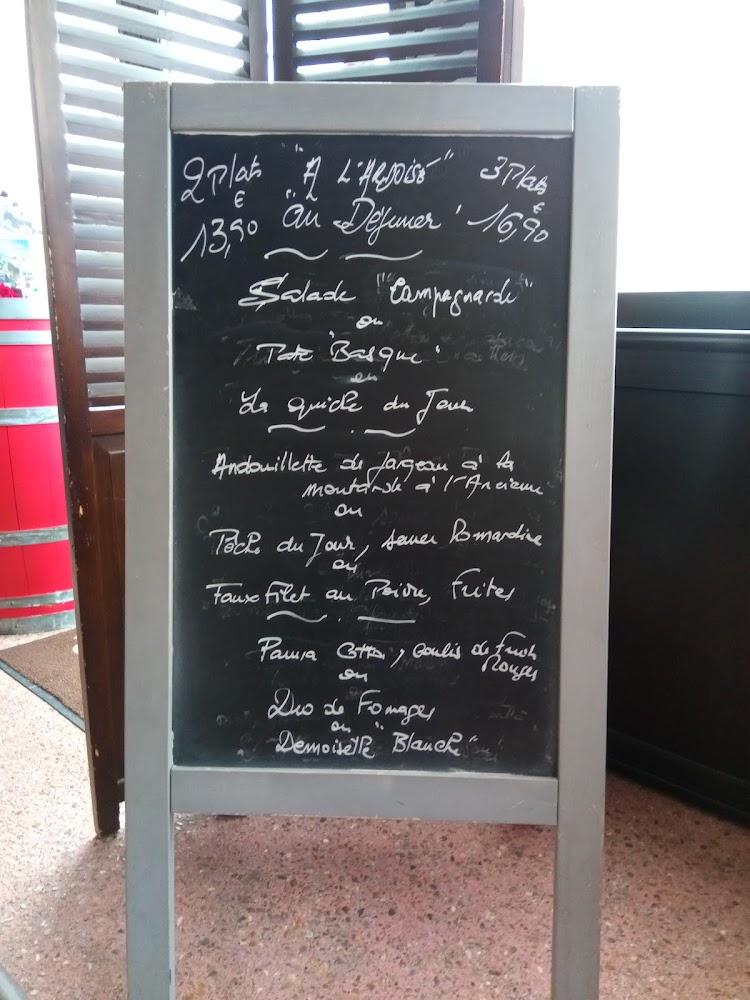 2 Plats "A L'ARDOISE" 3 Plats
€ "au Déjeuner" €
13,90 16,90
Salade "Campagnarde"
ou
Pate "Basque"
ou
La quiche du Jour
Andouillette de Jargeau à la
moutarde à l'Ancienne
ou
Pêche du Jour, sauce
ou
Faux Filet au Poivre, Frites
Panna Cotta, coulis de fruits
Rouges
ou
Duo de Fromages
ou
Demoiselle "Blanche"